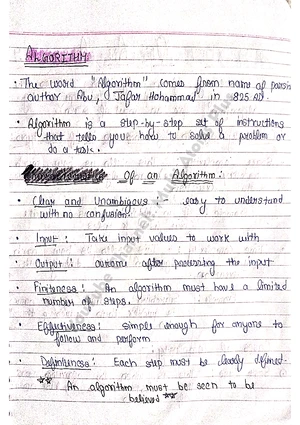 ALGORITHM
• The word "Algorithm" comes from name of
author Abu, Jafar Mohammad in 825 AD.
• Algorithm is a step-by-step set of instructions
that tells you how to solve a problem or
do a task.
Of an Algorithm:
• Clear and Unambigious : easy to understand
with no confusion
• Input : Take input values to work with
Output : outcome after processing the input
• Finiteness : An algorithm must have a limited
number steps.
• Effectiveness : simple enough for anyone to
follow and perform
• Definiteness : Each step must be clearly defined.
** An algorithm must be seen to be
believed **